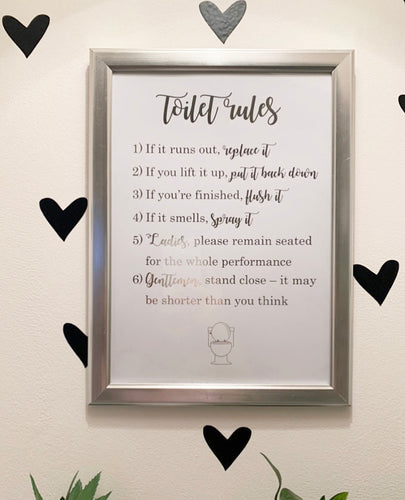 toilet rules
1) If it runs out, replace it
2) If you lift it up, put it back down
3) If you're finished, flush it
4) If it smells, spray it
5) Ladies, please remain seated
for the whole performance
6) Gentlemen, stand close – it may
be shorter than you think